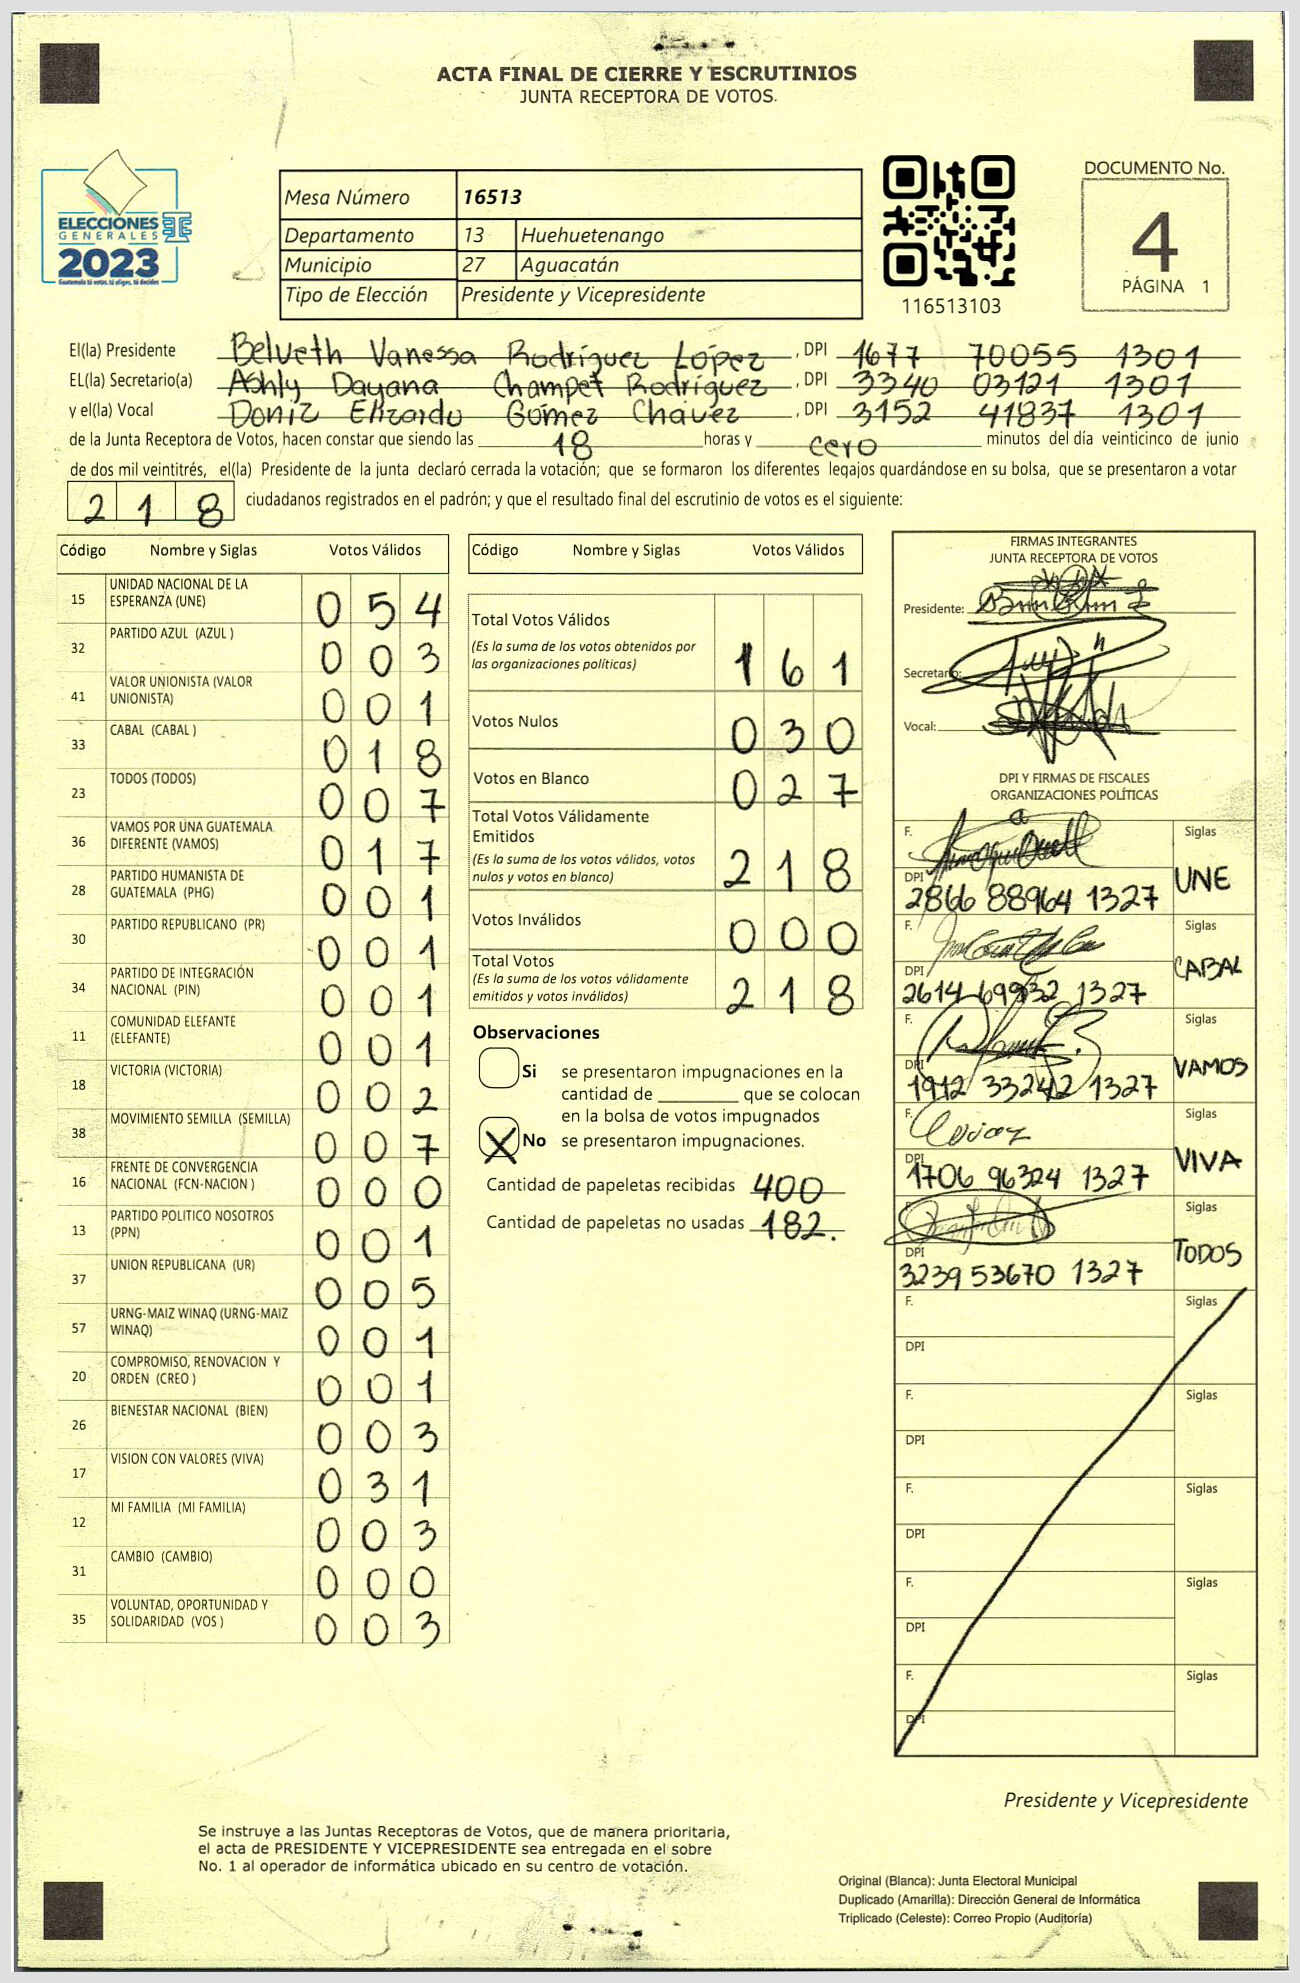 ACTA FINAL DE CIERRE Y ESCRUTINIOS
JUNTA RECEPTORA DE VOTOS.
ELECCIONES
GENERALES
2023
Guatemala tú votas, tú eliges, tú decides
Mesa Número 16513
Departamento 13 Huehuetenango
Municipio 27 Aguacatán
Tipo de Elección Presidente y Vicepresidente
116513103
DOCUMENTO No.
4
PÁGINA 1
El(la) Presidente Belveth Vanessa Rodríguez López, DPI 1677 70055 1301
EL(la) Secretario(a) Ashly Dayana Champet Rodríguez, DPI 3340 03121 1301
y el(la) Vocal Gómez Chávez, DPI 3152 41837 1301
de la Junta Receptora de Votos, hacen constar que siendo las 18 horas y cero minutos del día veinticinco de junio
de dos mil veintitrés, el(la) Presidente de la junta declaró cerrada la votación; que se formaron los diferentes legajos quardándose en su bolsa, que se presentaron a votar
218 ciudadanos registrados en el padrón; y que el resultado final del escrutinio de votos es el siguiente:
Código Nombre y Siglas Votos Válidos
15 UNIDAD NACIONAL DE LA ESPERANZA (UNE) 054
32 PARTIDO AZUL (AZUL ) 003
41 VALOR UNIONISTA (VALOR UNIONISTA) 001
33 CABAL (CABAL ) 018
23 TODOS (TODOS) 007
36 VAMOS POR UNA GUATEMALA DIFERENTE (VAMOS) 017
28 PARTIDO HUMANISTA DE GUATEMALA (PHG) 001
30 PARTIDO REPUBLICANO (PR) 001
34 PARTIDO DE INTEGRACIÓN NACIONAL (PIN) 001
11 COMUNIDAD ELEFANTE (ELEFANTE) 001
18 VICTORIA (VICTORIA) 002
38 MOVIMIENTO SEMILLA (SEMILLA) 007
16 FRENTE DE CONVERGENCIA NACIONAL (FCN-NACION ) 000
13 PARTIDO POLITICO NOSOTROS (PPN) 001
37 UNION REPUBLICANA (UR) 005
57 URNG-MAIZ WINAQ (URNG-MAIZ WINAQ) 001
20 COMPROMISO, RENOVACION Y ORDEN (CREO ) 001
26 BIENESTAR NACIONAL (BIEN) 003
17 VISION CON VALORES (VIVA) 031
12 MI FAMILIA (MI FAMILIA) 003
31 CAMBIO (CAMBIO) 000
35 VOLUNTAD, OPORTUNIDAD Y SOLIDARIDAD (VOS ) 003
Código Nombre y Siglas Votos Válidos
Total Votos Válidos 161
(Es la suma de los votos obtenidos por
las organizaciones políticas)
Votos Nulos 030
Votos en Blanco 027
Total Votos Válidamente
Emitidos 218
(Es la suma de los votos válidos, votos
nulos y votos en blanco)
Votos Inválidos 000
Total Votos 218
(Es la suma de los votos válidamente
emitidos y votos inválidos)
Observaciones
Si se presentaron impugnaciones en la
cantidad de ________ que se colocan
en la bolsa de votos impugnados
X No se presentaron impugnaciones.
Cantidad de papeletas recibidas 400
Cantidad de papeletas no usadas 182.
FIRMAS INTEGRANTES
JUNTA RECEPTORA DE VOTOS
Presidente:
Secretario:
Vocal:
DPI Y FIRMAS DE FISCALES
ORGANIZACIONES POLÍTICAS
F. Siglas
DPI 2866 88964 1327 UNE
F. Siglas
DPI 2614 69932 1327 CABAL
F. Siglas
DPI 1912 33242 1327 VAMOS
F. Siglas
DPI 1706 96324 1327 VIVA
F. Siglas
DPI 3239 53670 1327 TODOS
F. Siglas
DPI
F. Siglas
DPI
F. Siglas
DPI
F. Siglas
DPI
F. Siglas
DPI
Presidente y Vicepresidente
Se instruye a las Juntas Receptoras de Votos, que de manera prioritaria,
el acta de PRESIDENTE Y VICEPRESIDENTE sea entregada en el sobre
No. 1 al operador de informática ubicado en su centro de votación.
Original (Blanca): Junta Electoral Municipal
Duplicado (Amarilla): Dirección General de Informática
Triplicado (Celeste): Correo Propio (Auditoría)